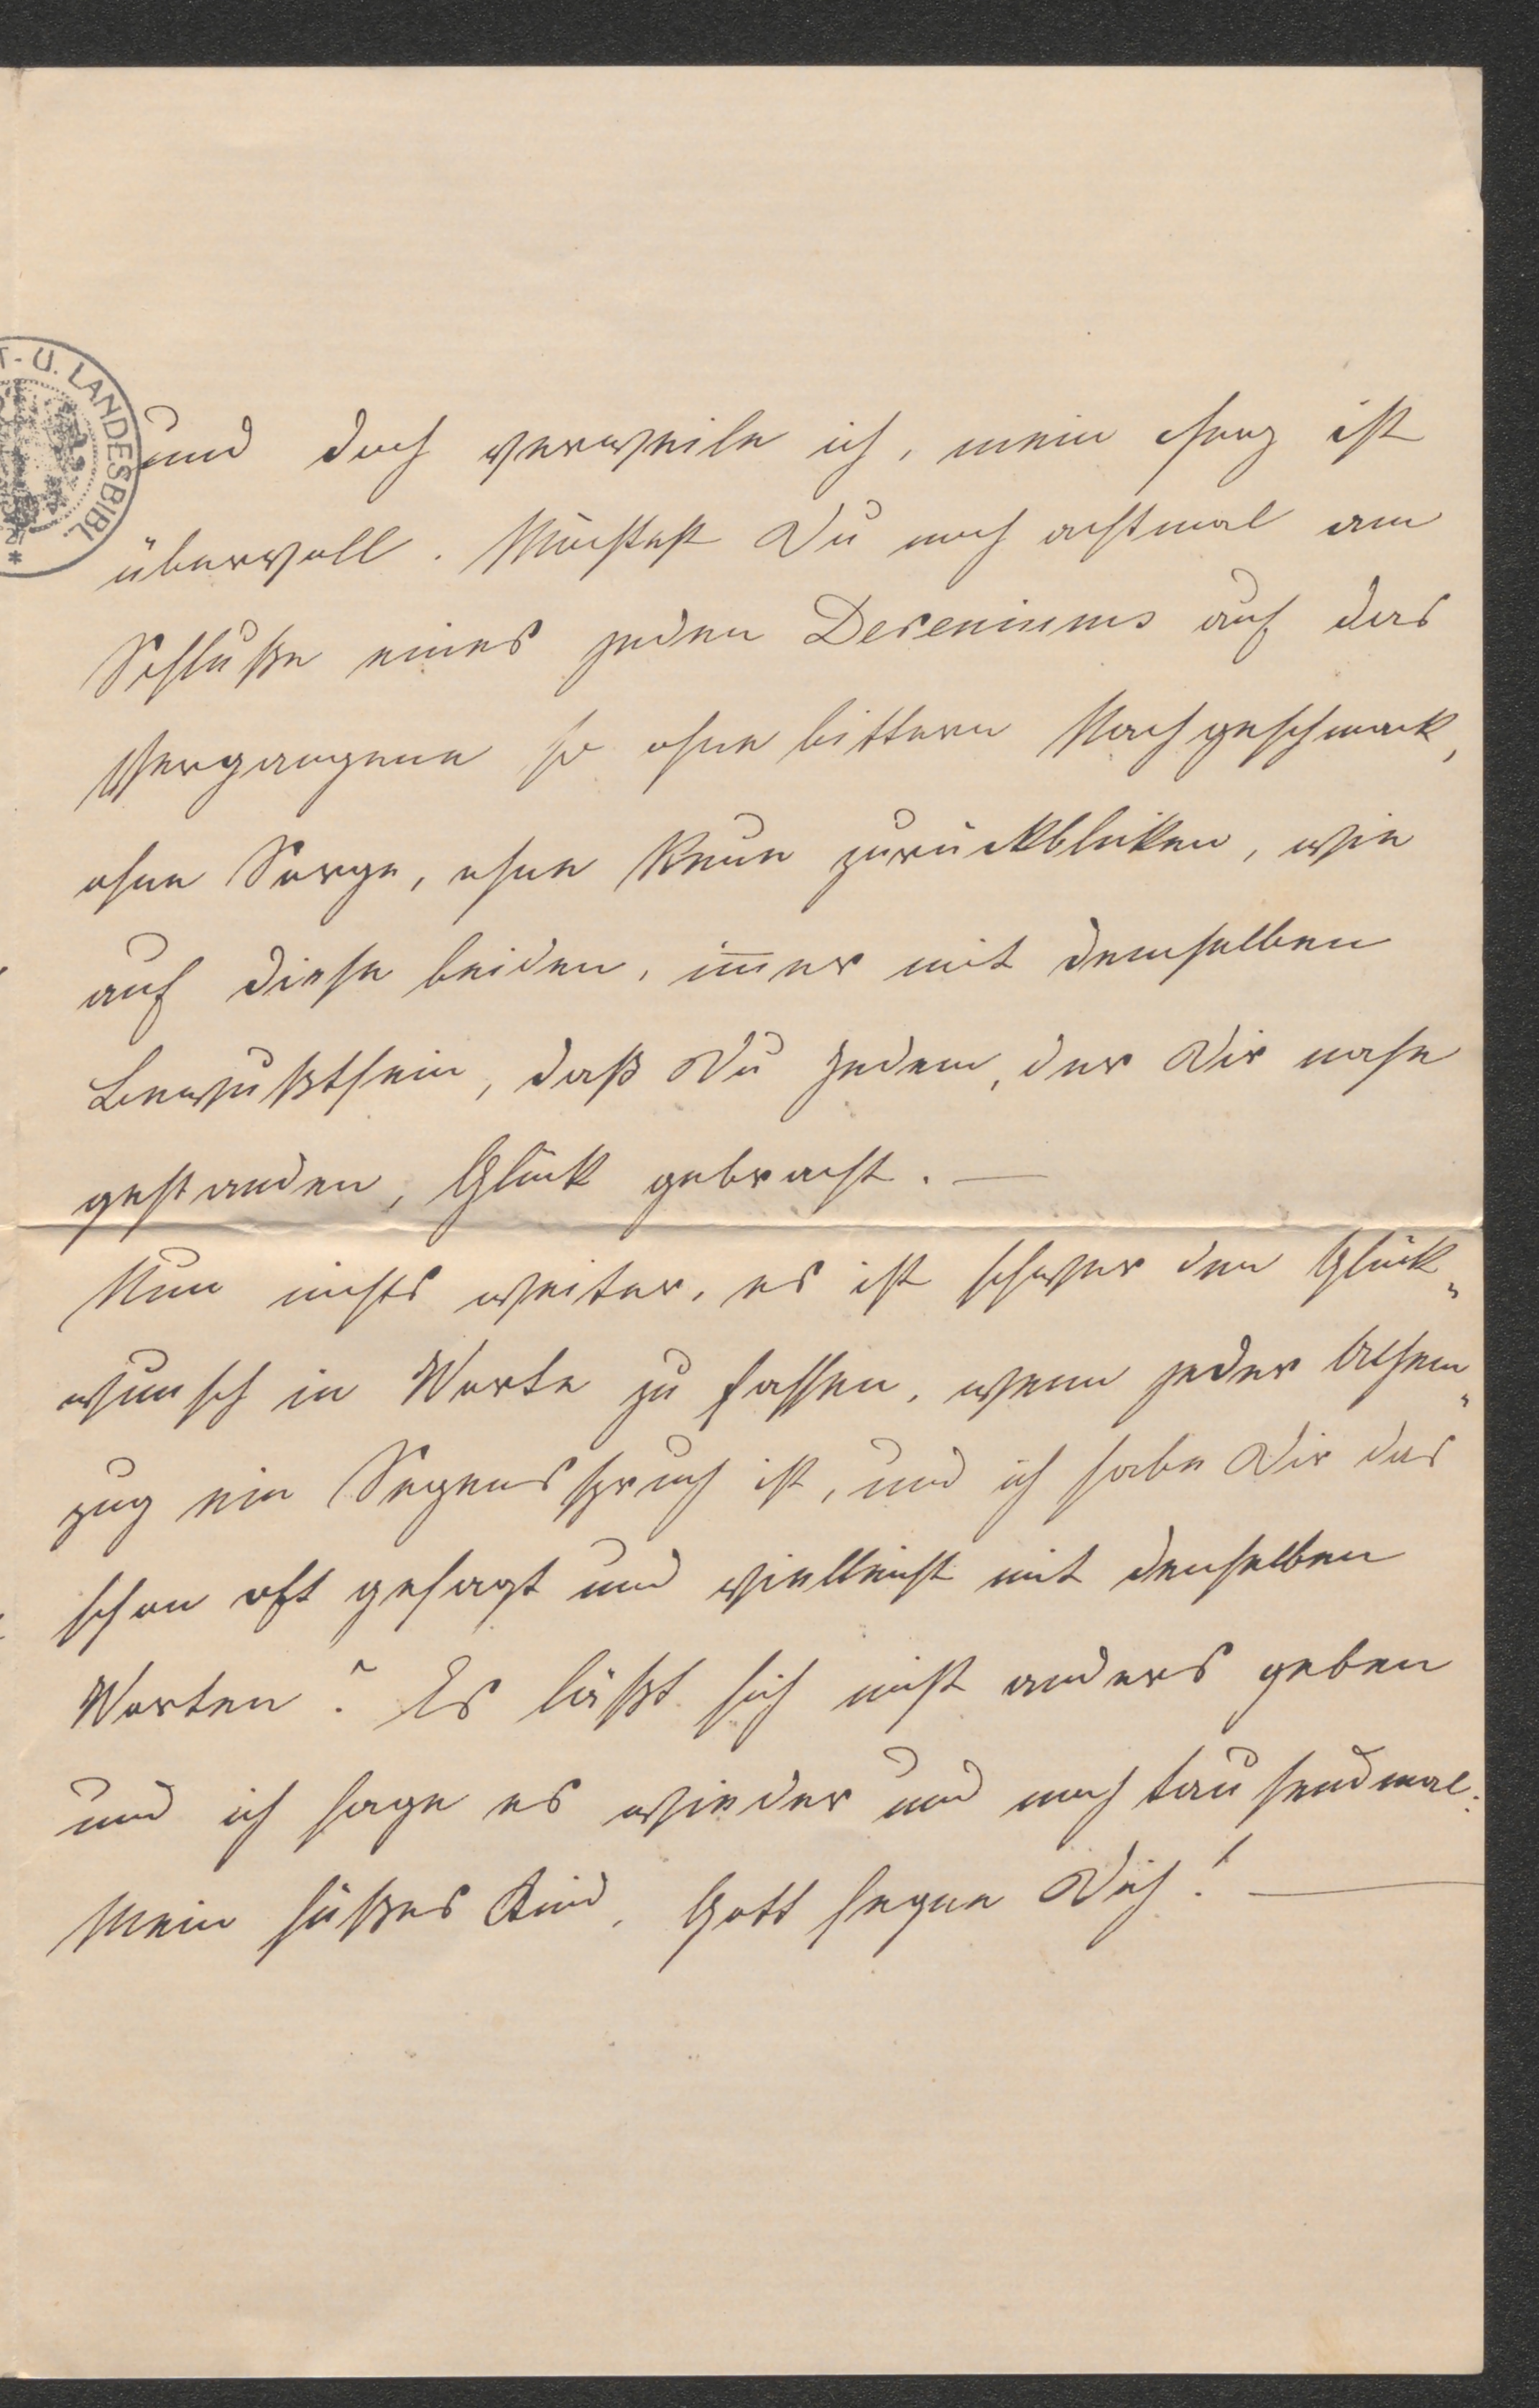 T- U. LANDESBIBL.
*
und doch verweile ich, mein Herz ist
übervoll. Möchtest Du noch achtmal am
Schluße eines jeden Deceniums auf das
Vergangene so ohne bittern Nachgeschmack,
ohne Sorge, ohne Reue zurückbliken, wie
auf diese beiden, im̅er mit demselben
Bewußtsein, daß Du Jedem, der Dir nahe
gestanden, Glück gebracht. —
Nun nichts weiter, es ist schwer den Glück„
wunsch in Worte zu fassen, wenn jeder Athem„
zug ein Segensspruch ist, und ich habe Dir das
schon oft gesagt und vielleicht mit denselben
Worten? Es läßt sich nicht anders geben
und ich sage es wieder und noch tausendmal:
Mein süßes Kind, Gott segne Dich! —